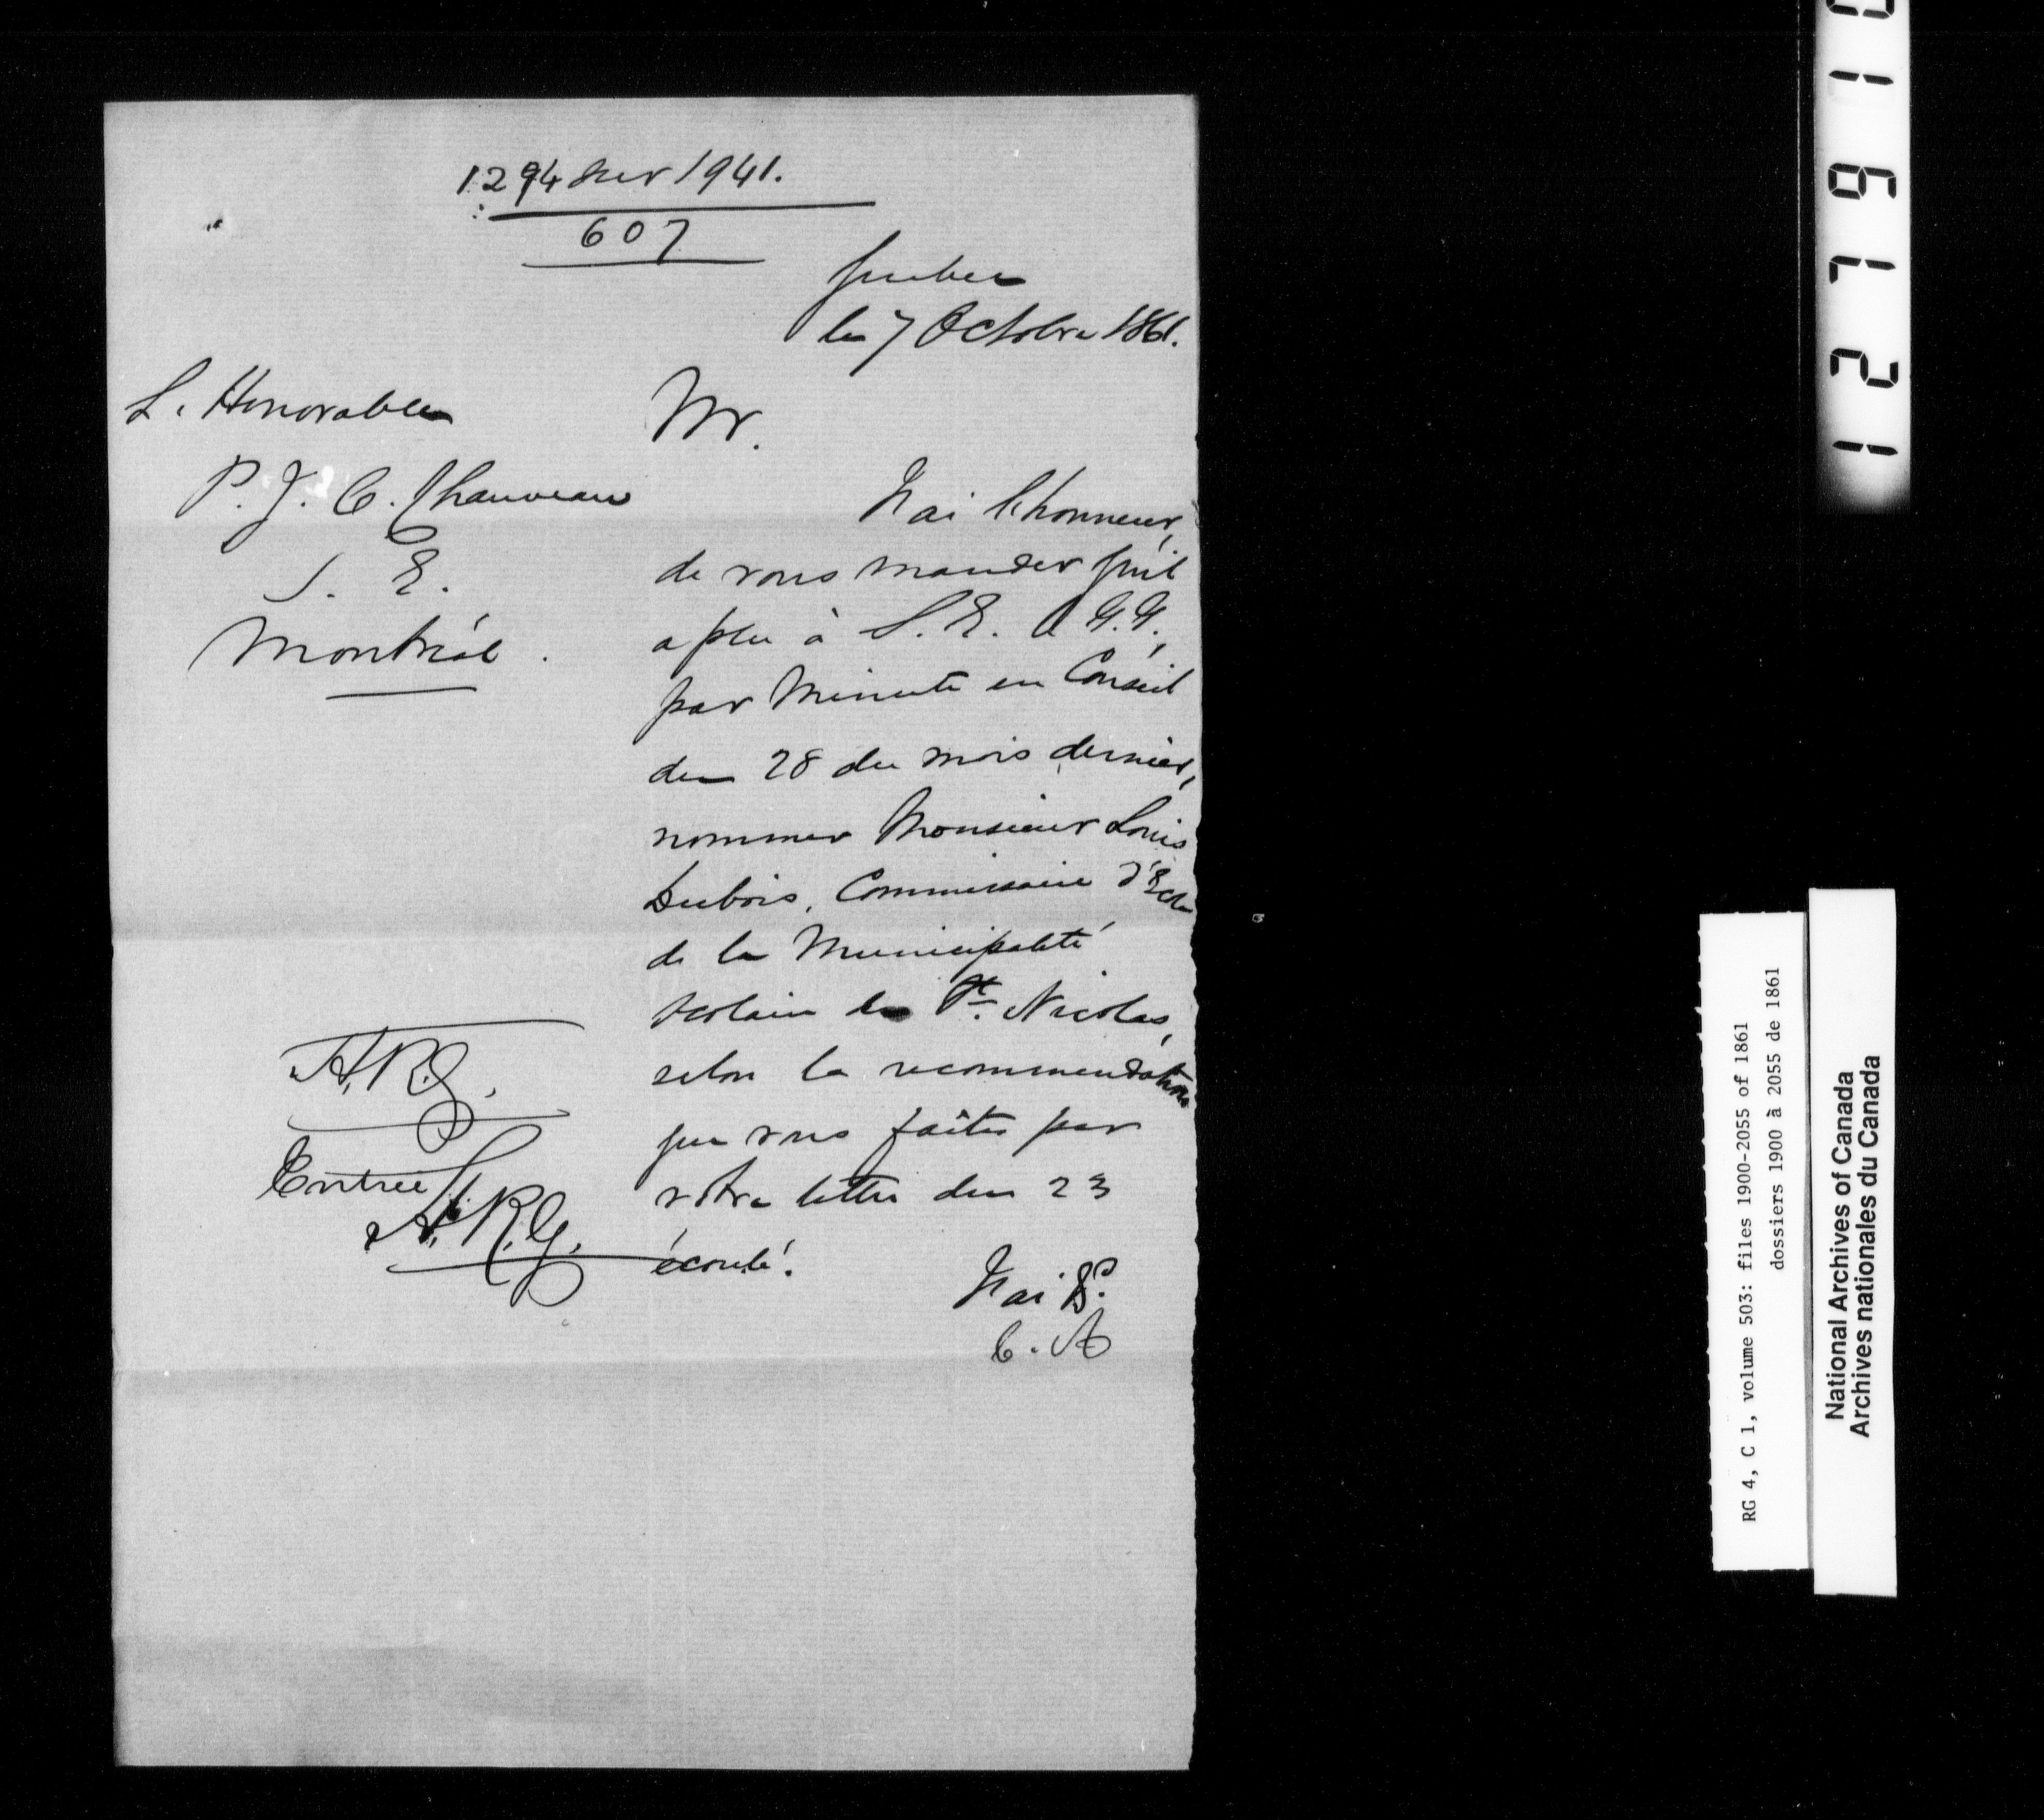 1294 sur 1941.
607
Quebec
le 7 Octobre 1861.
L'Honorable
P. J. O. Chauveau
S. E.
Montréal.
Mr.
J'ai l'honneur,
de vous mander qu'il
a plu à S. E. le G. G.,
par Minute en Conseil
du 28 du mois dernier,
nommer Monsieur Louis
Dubois, Commissaire d'Ecole
de la Municipalité
scolaire de St. Nicolas,
selon la recommendation
que vous faîtes par
votre lettre du 23
écoulé.
J'ai &c.
C. A
A. R. G.
Entrée
A. R. G.
0
1
6
7
2
1
RG 4, C 1, volume 503: files 1900-2055 of 1861
dossiers 1900 à 2055 de 1861
National Archives of Canada
Archives nationales du Canada